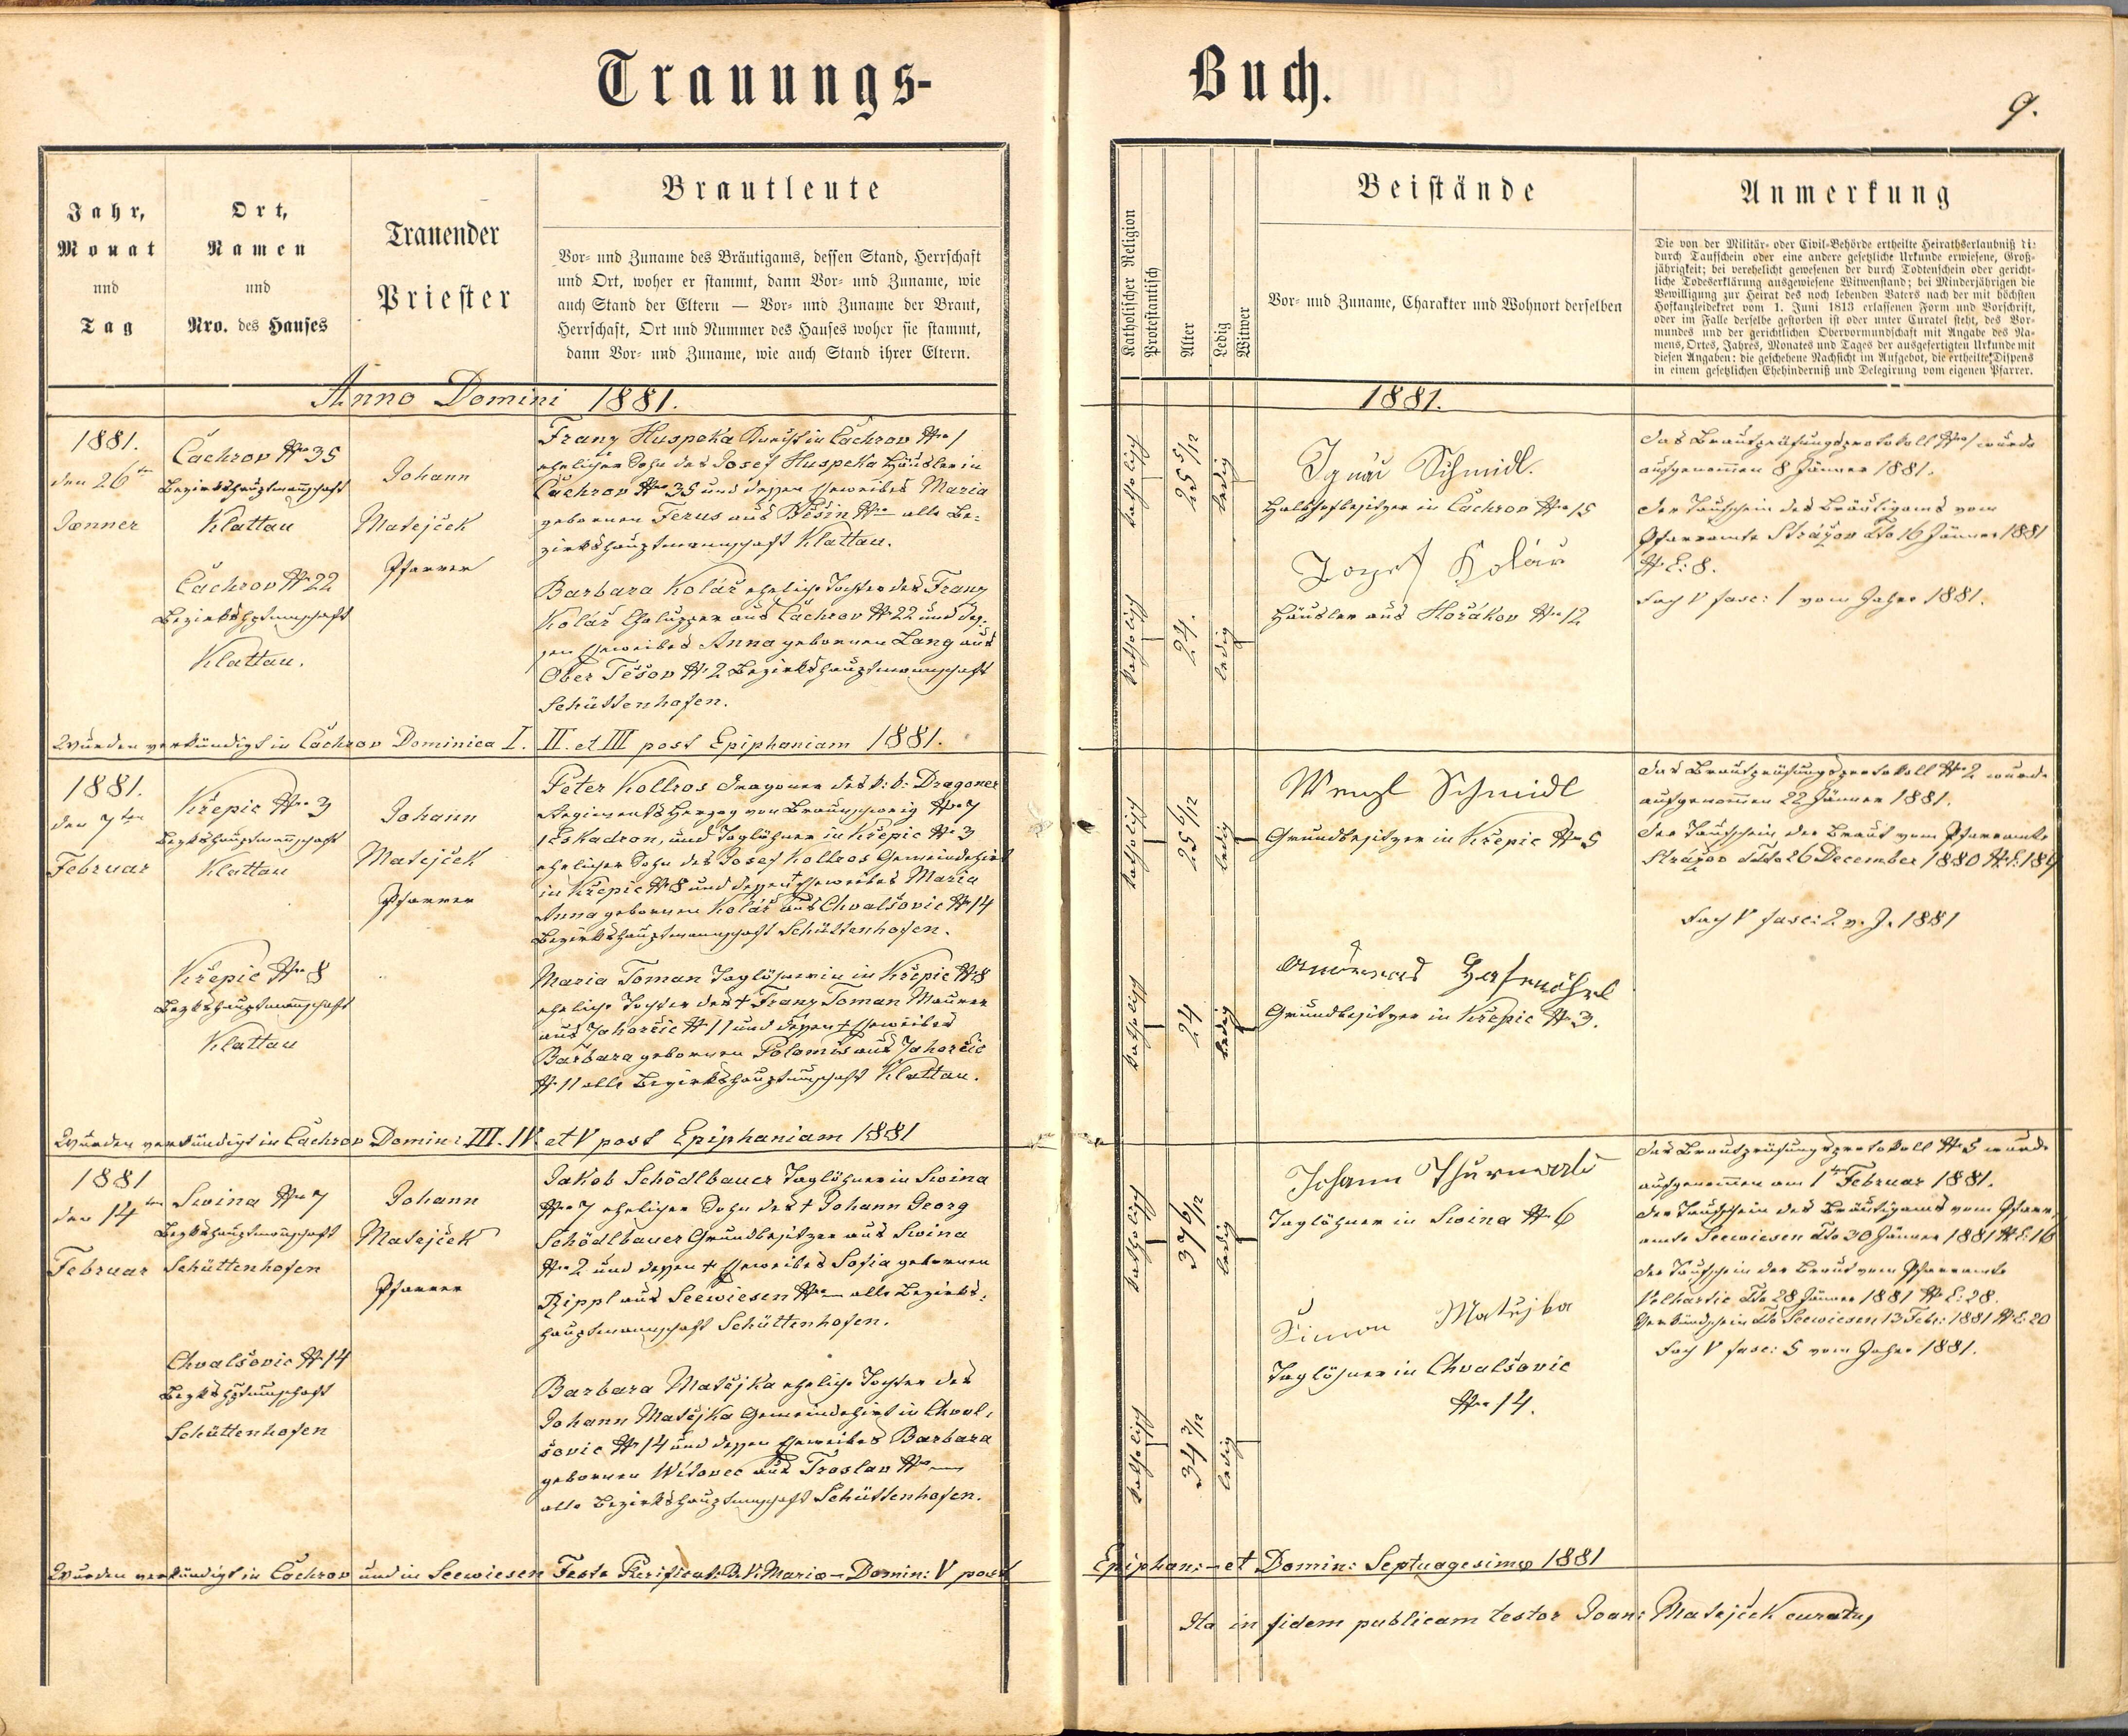 Trauungs-
Buch.
9.
Jahr,
Monat
und
Tag
Ort,
Namen
und
Nro. des Hauses
Trauender
Priester
Brautleute
Vor- und Zuname des Bräutigams, dessen Stand, Herrschaft
und Ort, woher er stammt, dann Vor- und Zuname, wie
auch Stand der Eltern — Vor- und Zuname der Braut,
Herrschaft, Ort und Nummer des Hauses woher sie stammt,
dann Vor- und Zuname, wie auch Stand ihrer Eltern.
Katholischer Religion
Protestantisch
Alter
Ledig
Witwer
Beistände
Vor- und Zuname, Charakter und Wohnort derselben
Anmerkung
Die von der Militär- oder Civil-Behörde ertheilte Heirathserlaubniß di:
durch Taufschein oder eine andere gesetzliche Urkunde erwiesene, Groß-
jährigkeit; bei verehelicht gewesenen der durch Todtenschein oder gericht-
liche Todeserklärung ausgewiesene Witwenstand; bei Minderjährigen die
Bewilligung zur Heirat des noch lebenden Vaters nach der mit höchsten
Hofkanzleidekret vom 1. Juni 1813 erlassenen Form und Vorschrift,
oder im Falle derselbe gestorben ist oder unter Curatel steht, des Vor-
mundes und der gerichtlichen Obervormundschaft mit Angabe des Na-
mens, Ortes, Jahres, Monates und Tages der ausgefertigten Urkunde mit
diesen Angaben: die geschehene Nachsicht im Aufgebot, die ertheilte Dispens
in einem gesetzlichen Ehehinderniß und Delegirung vom eigenen Pfarrer.
Anno Domini 1881.
1881.
1881.
den 26ten
Jænner
Čachrov Nro 35
Bezirkshauptmannschaft
Klattau
Čachrov N 22
Bezirkshptmnschaft
Klattau.
Johann
Matejček
Pfarrer
Franz Huspeka in Čachrov Nro 1
ehelicher Sohn des Josef Huspeka Häusler in
Čachrov Nro 35 und dessen Eheweibes Maria
gebornen Ferus aus Běšin Nro — alle Be-
zirkshauptmannschaft Klattau.
Barbara Kolář eheliche Tochter des Franz
Kolář Chaluppner aus Čachrov N 22 und des-
sen Eheweibes Anna gebornen Lang aus
Ober Těšov N 2 Bezirkshauptmannschaft
Schüttenhofen.
katholisch
25 5/12
ledig
katholisch
24.
ledig
Ignáz Schmidl.
Halbhofbesitzer in Čachrov Nro 15
Josef Kolář
Häusler aus Horákov Nro 12
Das Brautprüfungsprotokoll Nro 1 wurde
aufgenommen 8 Jänner 1881.
Der Taufschein des Bräutigams vom
Pfarramte Strážov dto 16 Jänner 1881
N E: 8.
Fach V fasc: 1 vom Jahre 1881.
Wurden verkündigt in Čachrov Dominica I. II. et III post Epiphaniam 1881.
1881.
den 7ten
Februar
Křepic Nro 3
Bezkshauptmannschaft
Klattau
Křepic Nro 8
Bezkshauptmannschaft
Klattau
Johann
Matejček
Pfarrer
Peter Kollros Dragoner des k: k: Dragoner
Regiments Herzog von Braunschweig Nro 7
1 Eskadron, und Taglöhner in Křepic N 3
ehelicher Sohn des Josef Kollros Gemeindehirt
in Křepic N 8 und dessen † Eheweibes Maria
Anna gebornen Kolář aus Chvalšovic N 14
Bezirkshauptmannschaft Schüttenhofen.
Maria Toman Taglöhnerin in Křepic N 8
eheliche Tochter des † Franz Toman Maurer
aus Jahorčic N 11 und dessen † Eheweibes
Barbara gebornen aus Jahorčic
N 11 alle Bezirkshauptmnschaft Klattau.
katholisch
25 6/12
ledig
katholisch
24
ledig
Wenzl Schmidl
Grundbesitzer in Křepic N 5
Grundbesitzer in Křepic N 3.
Das Brautprüfungsprotokoll N 2 wurde
aufgenommen 22 Jänner 1881.
Der Taufschein der Braut vom Pfarramte
Strážov dto 26 December 1880 N E: 189
Fach V fasc: 2 v. J. 1881
Wurden verkündigt in Čachrov Domin: III. IV. et V post Epiphaniam 1881
1881
den 14ten
Februar
Swina Nro 7
Bezkshauptmannschaft
Schüttenhofen
Chvalšovic N 14
Bezkshptmnschaft
Schüttenhofen
Johann
Matejček
Pfarrer
Jakob Schödlbauer Taglöhner in Swina
Nro 7 ehelicher Sohn des † Johann Georg
Schödlbauer Grundbesitzer aus Swina
Nro 2 und dessen † Eheweibes Sofia gebornen
Rippl aus Seewiesen Nro — alle Bezirks-
hauptmannschaft Schüttenhofen.
Barbara Matějka eheliche Tochter des
Johann Matějka Gemeindehirt in Chval-
šovic N 14 und dessen Eheweibes Barbara
gebornen Witovec aus Troslav Nro —
alle Bezirkshauptmnschaft Schüttenhofen.
katholisch
37 6/12
ledig
katholisch
34 3/12
ledig
Johann
Taglöhner in Swina N 6
Simon Matějka
Taglöhner in Chvalšovic
Nro 14.
Das Brautprüfungsprotokoll N 5 wurde
aufgenommen am 1ten Februar 1881.
Der Taufschein des Bräutigams vom Pfarr-
amte Seewiesen dto 30 Jänner 1881 N E: 16
Der Taufschein der Braut vom Pfarramte
Velhartic dto 28 Jänner 1881 N E: 28.
Verkündschein dto Seewiesen 13 Feb: 1881 N E: 20
Fach V fasc: 5 vom Jahre 1881.
Wurden verkündigt in Čachrov und in Seewiesen Festo Purificat: B. V. Mariæ — Domin: V post Epiphan: — et Domin: Septuagesimæ 1881
Ita in fidem publicam testor Joan: Matejček curatus